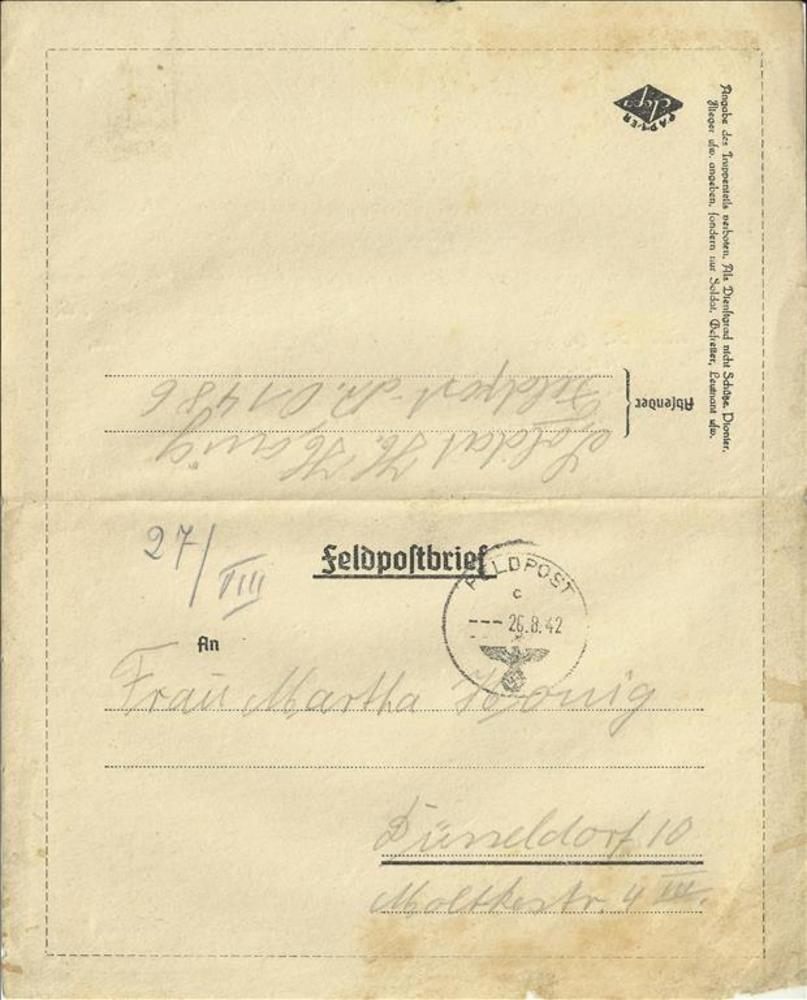 Angabe des Truppenteils verboten. Als Dienstgrad nicht Schütze, Pionier,
Flieger usw. angeben, sondern nur Soldat, Gefreiter, Leutnant usw.
PAPIER
Absender
Soldat H. König
Feldpost-Nr. 01486
27/VIII
Feldpostbrief
FELDPOST
c
--- 26.8.42
An
Frau Martha König
Düsseldorf 10
Moltkestr. 4 III.